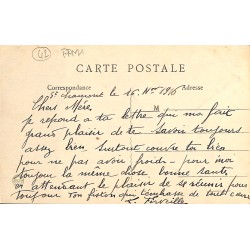 42
CARTE POSTALE
Correspondance Adresse
St Chamond le 16. Nov 1916
M
Chère Mère,
je repond a ta lettre qui ma fait
grand plaisir de te savoir toujours
assez bien. Surtout couvre toi bien
pour ne pas avoir froids - pour moi
toujour la meme chose bonne santé
en attendant le plaisir de se reunir pour
toujour Ton fiston qui t'embrasse de tout cœur